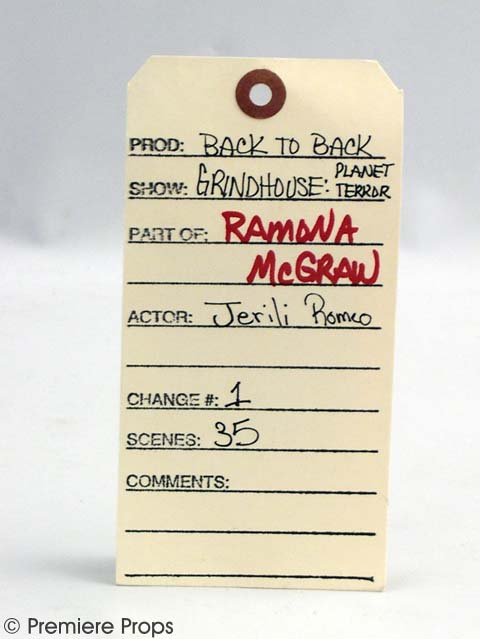 PROD: BACK TO BACK
SHOW: GRINDHOUSE: PLANET TERROR
PART OF: RAMONA
McGRAW
ACTOR: Jerili Romeo
CHANGE #: 1
SCENES: 35
COMMENTS:
© Premiere Props